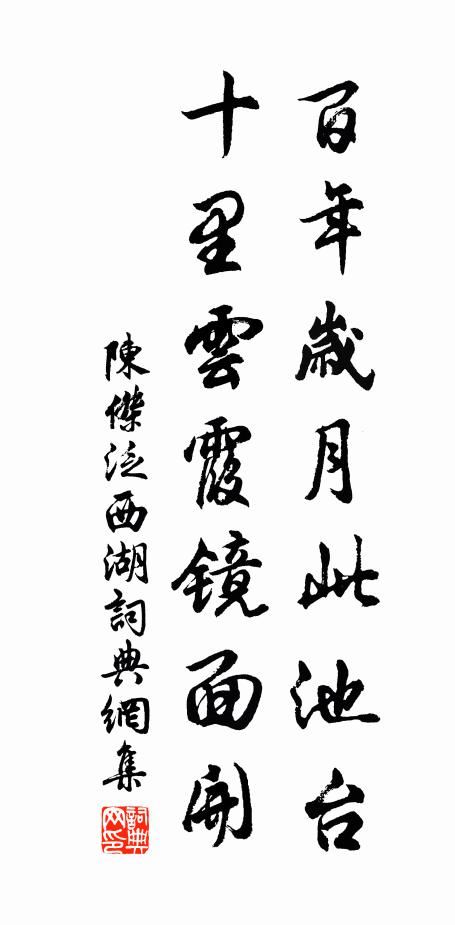 百年歲月此池台
十里雲霞镜面開
陳傑泛西湖詞典網集
詞典网印